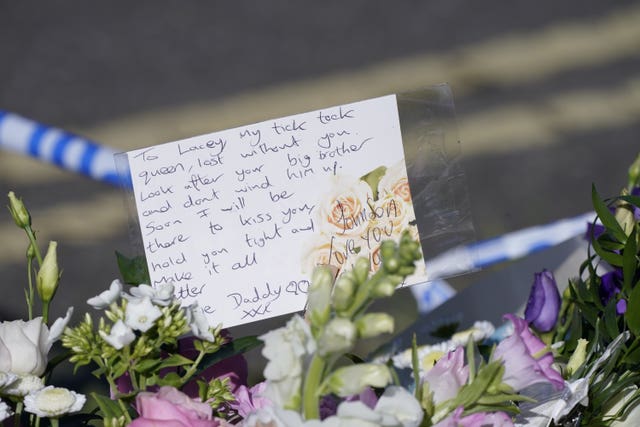 To Lacey my tick tock
queen, lost without you.
Look after your big brother
and don't wind him up.
Soon I will be
there to kiss you
hold you tight and
make it all
tter
Daddy
xxx
LOVE YOU